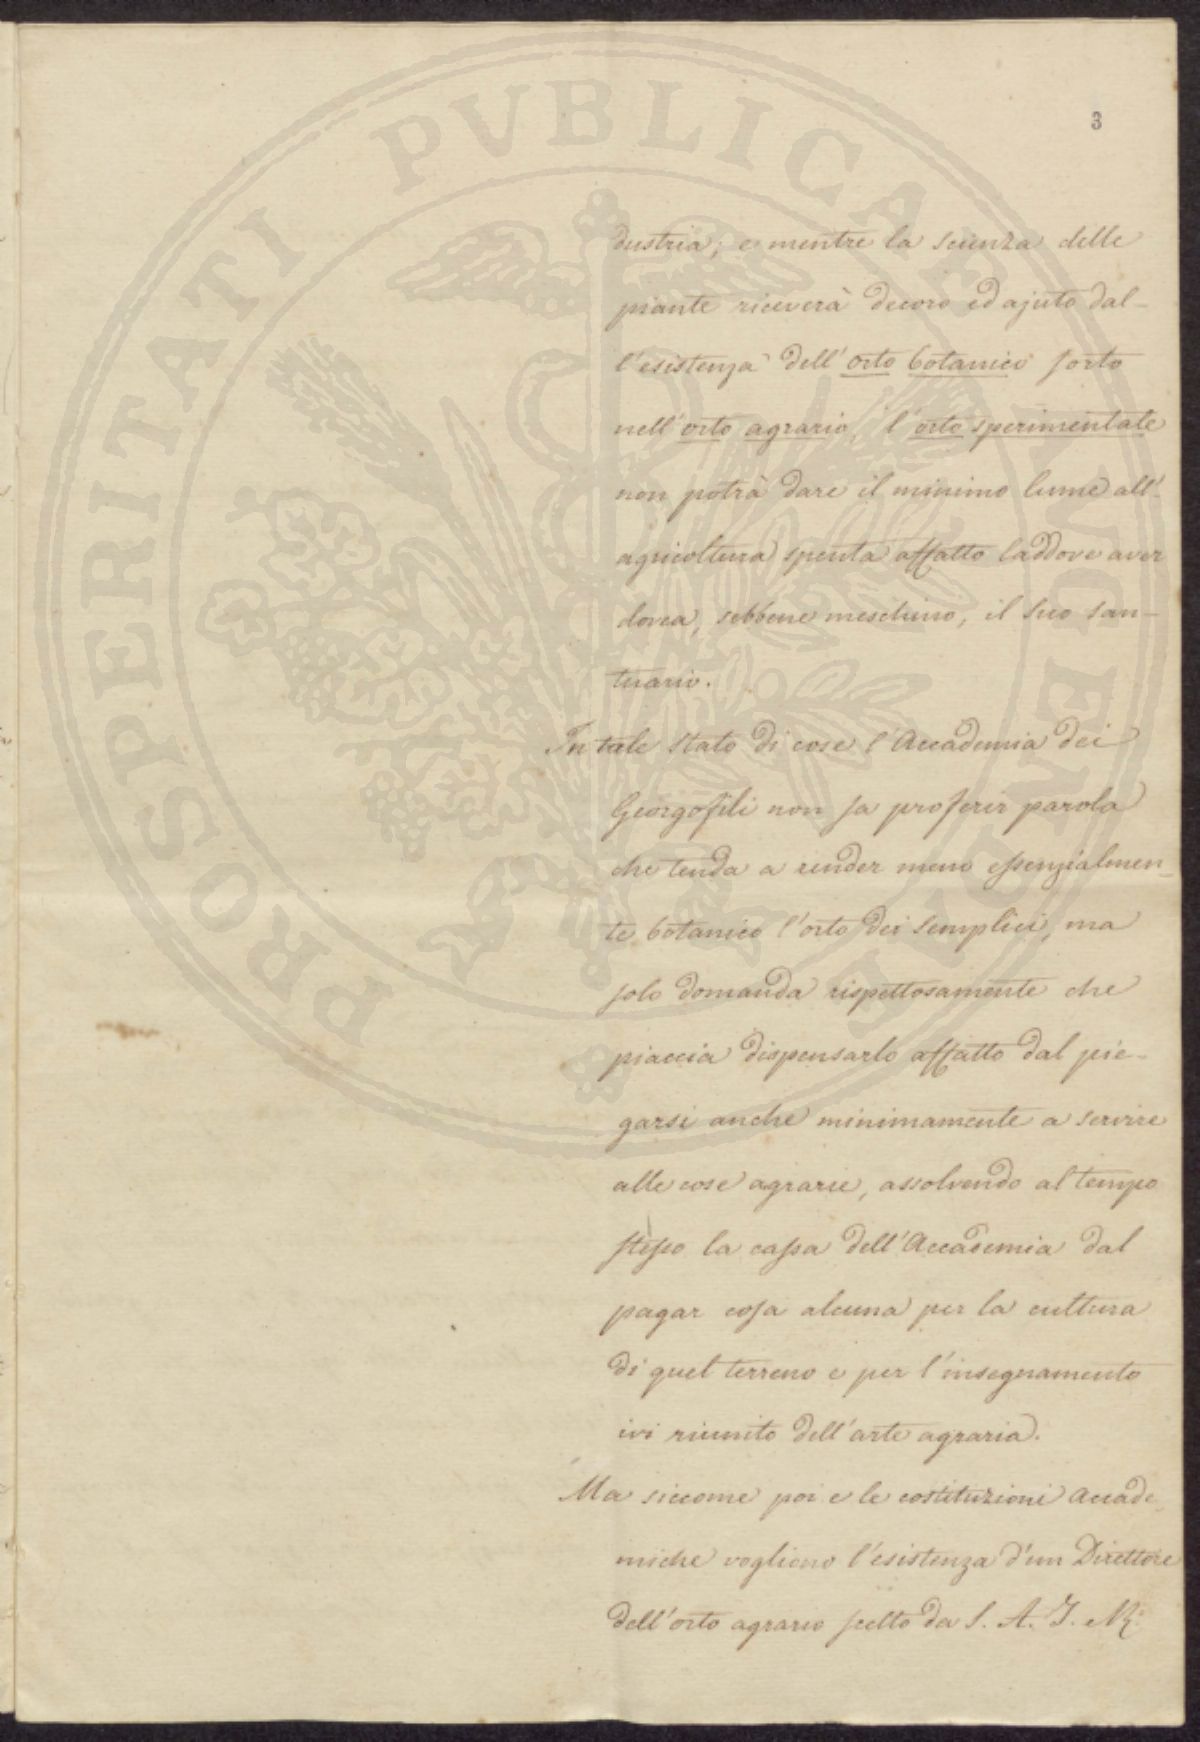 PROSPERITATI PVBLICAE AVGENDAE
3
dustria; e mentre la scienza delle
piante riceverà decoro ed ajuto dal-
l'esistenza dell'orto botanico sorto
nell'orto agrario, l'orto sperimentale
non potrà dare il minimo lume all'
agricoltura spenta affatto laddove aver
dovea, sebbene meschino, il suo san-
tuario.
In tale stato di cose l'Accademia dei
Georgofili non sa proferir parola
che tenda a render meno essenzialmen-
te botanico l'orto dei semplici, ma
solo domanda rispettosamente che
piaccia dispensarlo affatto dal pie-
garsi anche minimamente a servire
alle cose agrarie, assolvendo al tempo
stesso la cassa dell'Accademia dal
pagar cosa alcuna per la cultura
di quel terreno e per l'insegnamento
ivi riunito dell'arte agraria.
Ma siccome poi e le costituzioni Accade-
miche vogliono l'esistenza d'un Direttore
dell'orto agrario scelto da S. A. I. R.